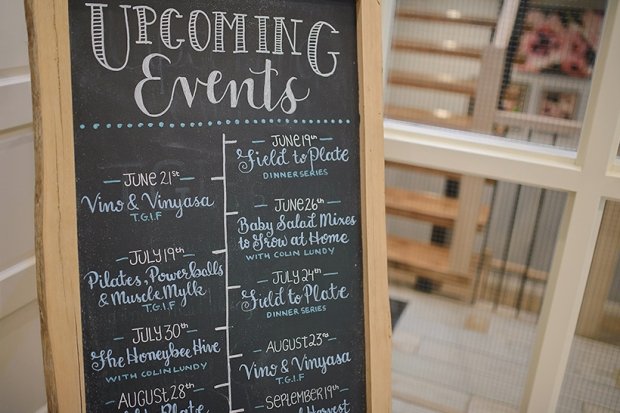 UPCOMING
Events
JUNE 19th
Field to Plate
DINNER SERIES
JUNE 21st
Vino & Vinyasa
T.G.I.F
JUNE 26th
Baby Salad Mixes
to Grow at Home
WITH COLIN LUNDY
JULY 19th
Pilates, Powerballs
& Muscle Mylk
T.G.I.F
JULY 24th
Field to Plate
DINNER SERIES
JULY 30th
The Honeybee Hive
WITH COLIN LUNDY
AUGUST 23rd
Vino & Vinyasa
T.G.I.F
AUGUST 28th
to Plate
SEPTEMBER 19th
Harvest